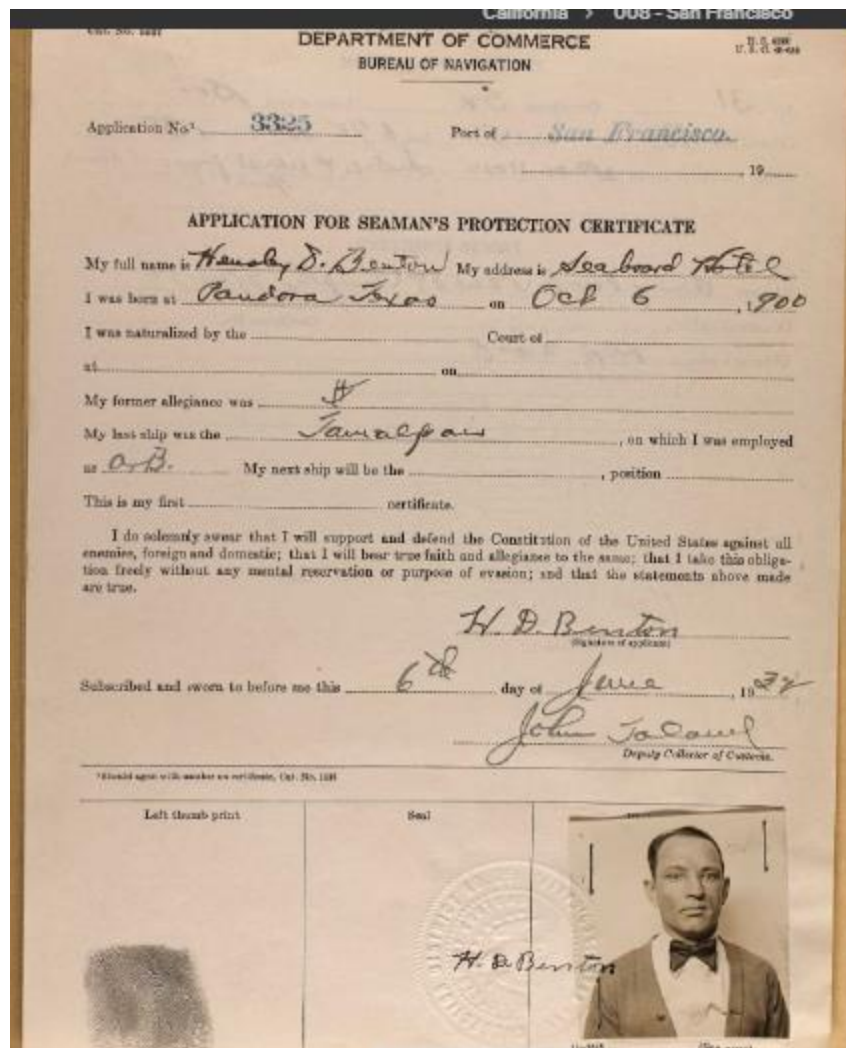 California > 008 - San Francisco
Cat. No.
DEPARTMENT OF COMMERCE
BUREAU OF NAVIGATION
Application No.¹ 3325 Port of San Francisco.
, 19
APPLICATION FOR SEAMAN'S PROTECTION CERTIFICATE
My full name is Hensley D. Benton My address is Seaboard Hotel
I was born at Pandora Texas on Oct 6, 1900
I was naturalized by the Court of
at on
My former allegiance was
My last ship was the Tamalpais, on which I was employed
as A.B. My next ship will be the , position
This is my first certificate.
I do solemnly swear that I will support and defend the Constitution of the United States against all
enemies, foreign and domestic; that I will bear true faith and allegiance to the same; that I take this obliga-
tion freely without any mental reservation or purpose of evasion; and that the statements above made
are true.
H. D. Benton
(Signature of applicant)
Subscribed and sworn to before me this 6th day of June, 1932
John
Deputy Collector of Customs.
¹Should agree with number on certificate, Cat. No.
Left thumb print Seal
H. D. Benton